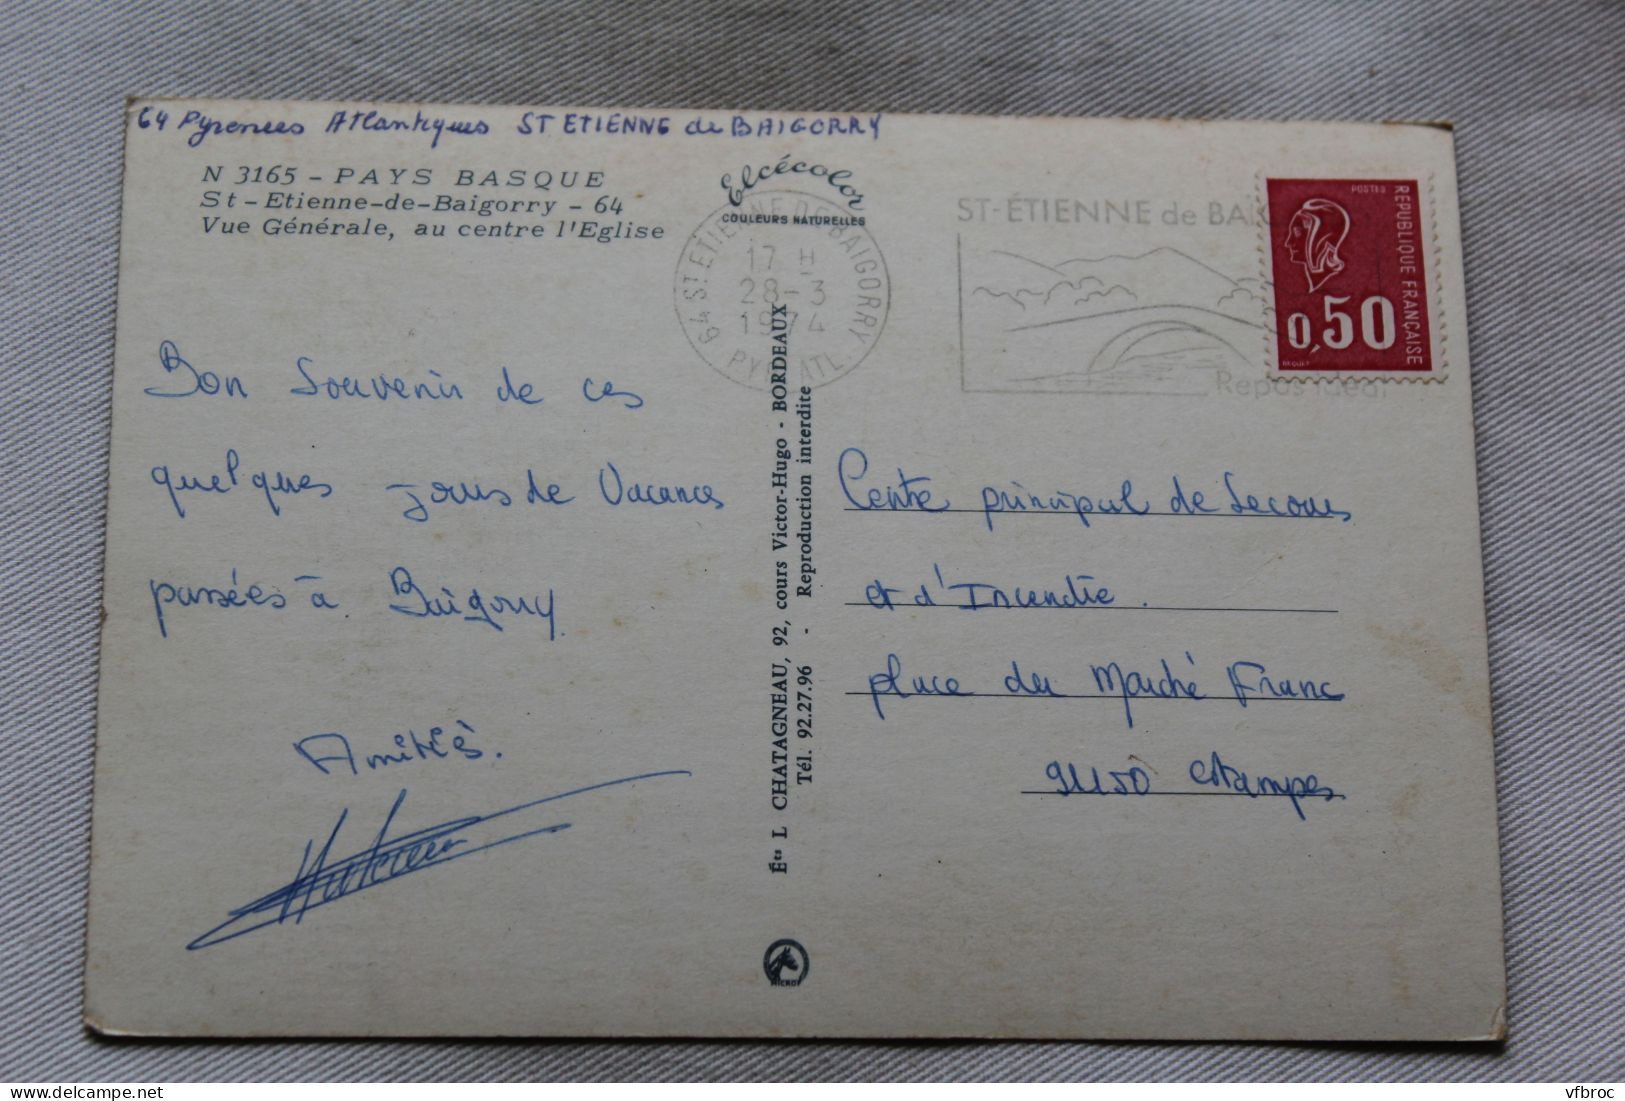 64 Pyrenees Atlantiques ST ETIENNE de BAIGORRY
N 3165 - PAYS BASQUE
St - Etienne-de-Baigorry - 64
Vue Générale, au centre l'Eglise
Elcécolor
COULEURS NATURELLES
64 ST ETIENNE DE BAIGORRY
17 H
28-3
1974
PYR. ATL.
ST-ÉTIENNE de BAÏG
Repos idéal
POSTES
REPUBLIQUE FRANÇAISE
0,50
BEQUET
Bon Souvenir de ces
quelques jours de Vacances
passées à Baigorry.
Amitiés.
Éts L CHATAGNEAU, 92, cours Victor-Hugo - BORDEAUX
Tél. 92.27.96 - Reproduction interdite
MICRO
Centre principal de Secours
et d'Incendie.
place du Marché Franc
91150 Etampes
vfbroc